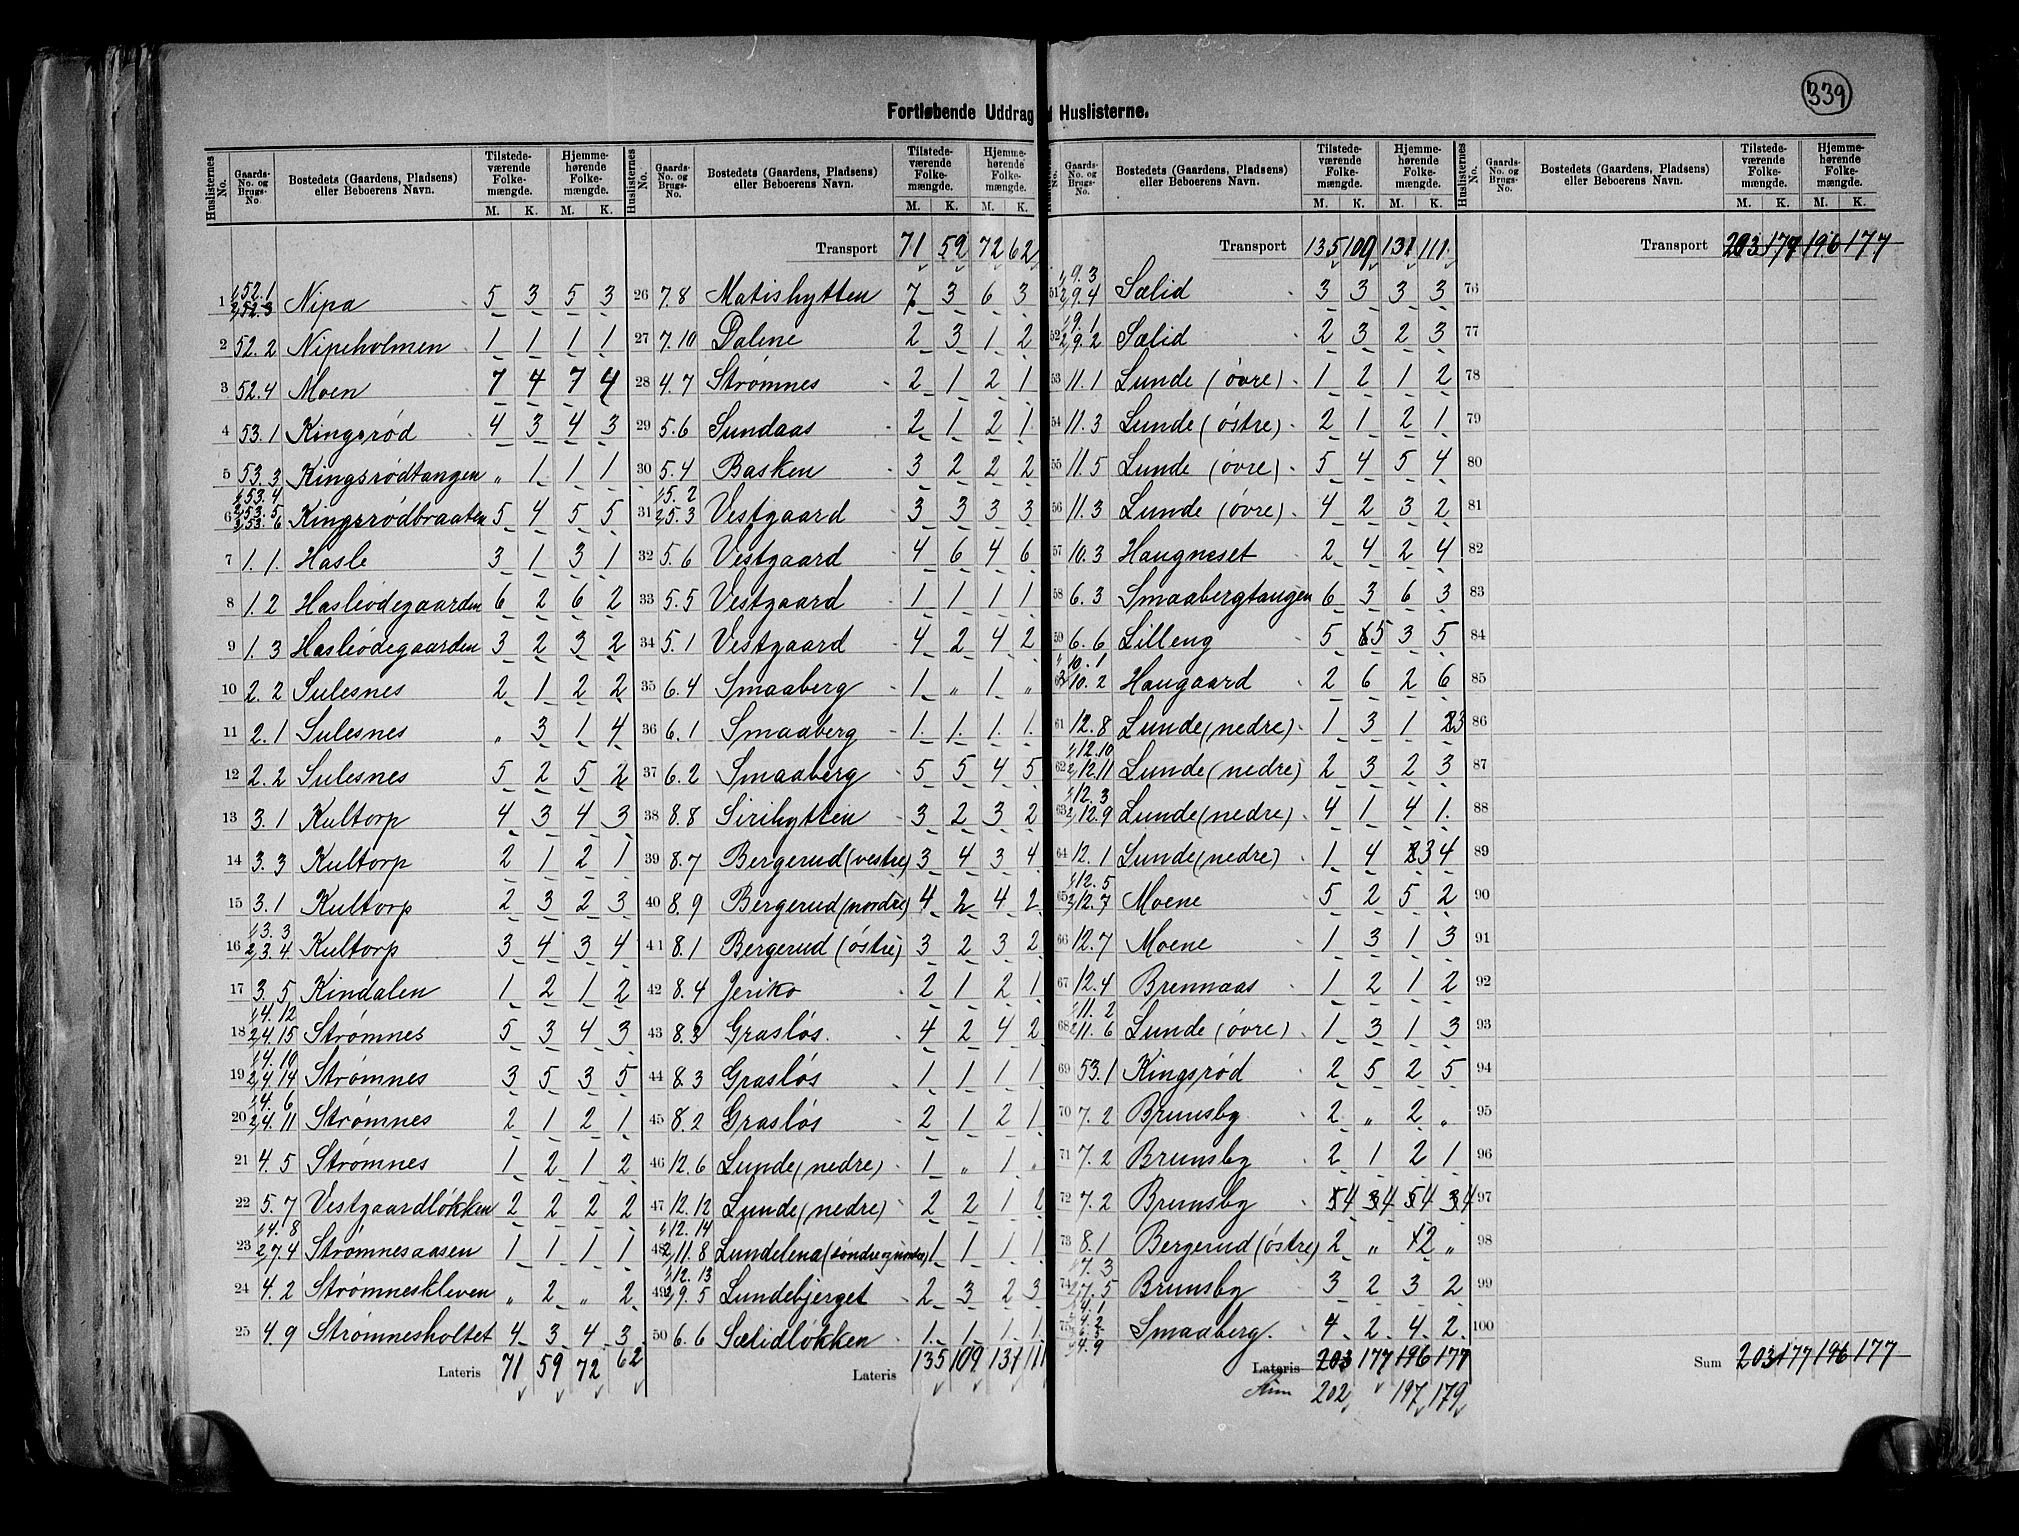 339
Fortløbende Uddrag Huslisterne.
Huslisternes No. Gaards-No. og Brugs-No. Bostedets (Gaardens, Pladsens) eller Beboerens Navn. Tilstedeværende Folkemængde. M. K. Hjemmehørende Folkemængde. M. K.
1 1/52.1 2/52.3 Nipa 5 3 5 3
2 52.2 Nipeholmen 1 1 1 1
3 52.4 Moen 7 4 7 4
4 53.1 Kingsrød 4 3 4 3
5 53.3 Kingsrødtangen „ 1 1 1
6 1/53.4 2/53.5 3/53.6 Kingsrødbraaten 5 4 5 5
7 1.1 Hasle 3 1 3 1
8 1.2 Hasleødegaarden 6 2 6 2
9 1.3 Hasleødegaarden 3 2 3 2
10 2.2 Sulesnes 2 1 2 2
11 2.1 Sulesnes „ 3 1 4
12 2.2 Sulesnes 5 2 5 2
13 3.1 Kultorp 4 3 4 3
14 3.3 Kultorp 2 1 2 1
15 3.1 Kultorp 2 3 2 3
16 1/3.3 2/3.4 Kultorp 3 4 3 4
17 3.5 Kindalen 1 2 1 2
18 1/4.12 2/4.15 Strømnes 5 3 4 3
19 1/4.10 2/4.14 Strømnes 3 5 3 5
20 1/4.6 2/4.11 Strømnes 2 1 2 1
21 4.5 Strømnes 1 2 1 2
22 5.7 Vestgaardløkken 2 2 2 2
23 1/4.8 2/7.4 Strømnesaasen 1 1 1 1
24 4.2 Strømneskleven „ 2 „ 2
25 4.9 Strømnesholtet 4 3 4 3
Lateris 71 59 72 62
Huslisternes No. Gaards-No. og Brugs-No. Bostedets (Gaardens, Pladsens) eller Beboerens Navn. Tilstedeværende Folkemængde. M. K. Hjemmehørende Folkemængde. M. K.
Transport 71 59 72 62
26 7.8 Matishytten 7 3 6 3
27 7.10 Dalene 2 3 1 2
28 4.7 Strømnes 2 1 2 1
29 5.6 Sundaas 2 1 2 1
30 5.4 Basken 3 2 2 2
31 1/5.2 2/5.3 Vestgaard 3 3 3 3
32 5.6 Vestgaard 4 6 4 6
33 5.5 Vestgaard 1 1 1 1
34 5.1 Vestgaard 4 2 4 2
35 6.4 Smaaberg 1 „ 1 „
36 6.1 Smaaberg 1 1 1 1
37 6.2 Smaaberg 5 5 4 5
38 8.8 Sirihytten 3 2 3 2
39 8.7 Bergerud (vestre) 3 4 3 4
40 8.9 Bergerud (nordre) 4 2 4 2
41 8.1 Bergerud (østre) 3 2 3 2
42 8.4 Jeriko 2 1 2 1
43 8.3 Grasløs 4 2 4 2
44 8.3 Grasløs 1 1 1 1
45 8.2 Grasløs 2 1 2 1
46 12.6 Lunde (nedre) 1 „ 1 „
47 12.12 Lunde (nedre) 2 2 1 2
48 1/12.14 2/11.8 Lundelena (søndre og nordre) 1 1 1 1
49 1/12.13 2/9.5 Lundebjerget 2 3 2 3
50 6.6 Sælidløkken 1 1 1 1
Lateris 135 109 131 111
Gaards-No. og Brugs-No. Bostedets (Gaardens, Pladsens) eller Beboerens Navn. Tilstedeværende Folkemængde. M. K. Hjemmehørende Folkemængde. M. K.
Transport 135 109 131 111
51 1/9.3 2/9.4 Sælid 3 3 3 3
52 1/9.1 2/9.2 Sælid 2 3 2 3
53 11.1 Lunde (øvre) 1 2 1 2
54 11.3 Lunde (østre) 2 1 2 1
55 11.5 Lunde (øvre) 5 4 5 4
56 11.3 Lunde (øvre) 4 2 3 2
57 10.3 Haugneset 2 4 2 4
58 6.3 Smaabergtangen 6 3 6 3
59 6.6 Lilleng 5 5 3 5
1/10.1 2/10.2 Haugaard 2 6 2 6
61 12.8 Lunde (nedre) 1 3 1 3
62 1/12.10 2/12.11 Lunde (nedre) 2 3 2 3
63 1/12.3 2/12.9 Lunde (nedre) 4 1 4 1
64 12.1 Lunde (nedre) 1 4 3 4
65 1/12.5 2/12.7 Moene 5 2 5 2
66 12.7 Moene 1 3 1 3
67 12.4 Brennaas 1 2 1 2
68 1/11.2 2/11.6 Lunde (øvre) 1 3 1 3
69 53.1 Kingsrød 2 5 2 5
70 7.2 Brunsby 2 „ 2 „
71 7.2 Brunsby 2 1 2 1
72 7.2 Brunsby 5 4 3 4 5 4 3 4
73 8.1 Bergerud (østre) 2 „ 2 „
74 1/7.3 2/7.5 Brunsby 3 2 3 2
75 4.1 4.2 4.9 Smaaberg 4 2 4 2
Lateris 203 177 196 177
Sum 202 197 179
Huslisternes No. Gaards-No. og Brugs-No. Bostedets (Gaardens, Pladsens) eller Beboerens Navn. Tilstedeværende Folkemængde. M. K. Hjemmehørende Folkemængde. M. K.
Transport 203 177 196 177
76
77
78
79
80
81
82
83
84
85
86
87
88
89
90
91
92
93
94
95
96
97
98
99
100
Sum 203 177 196 177